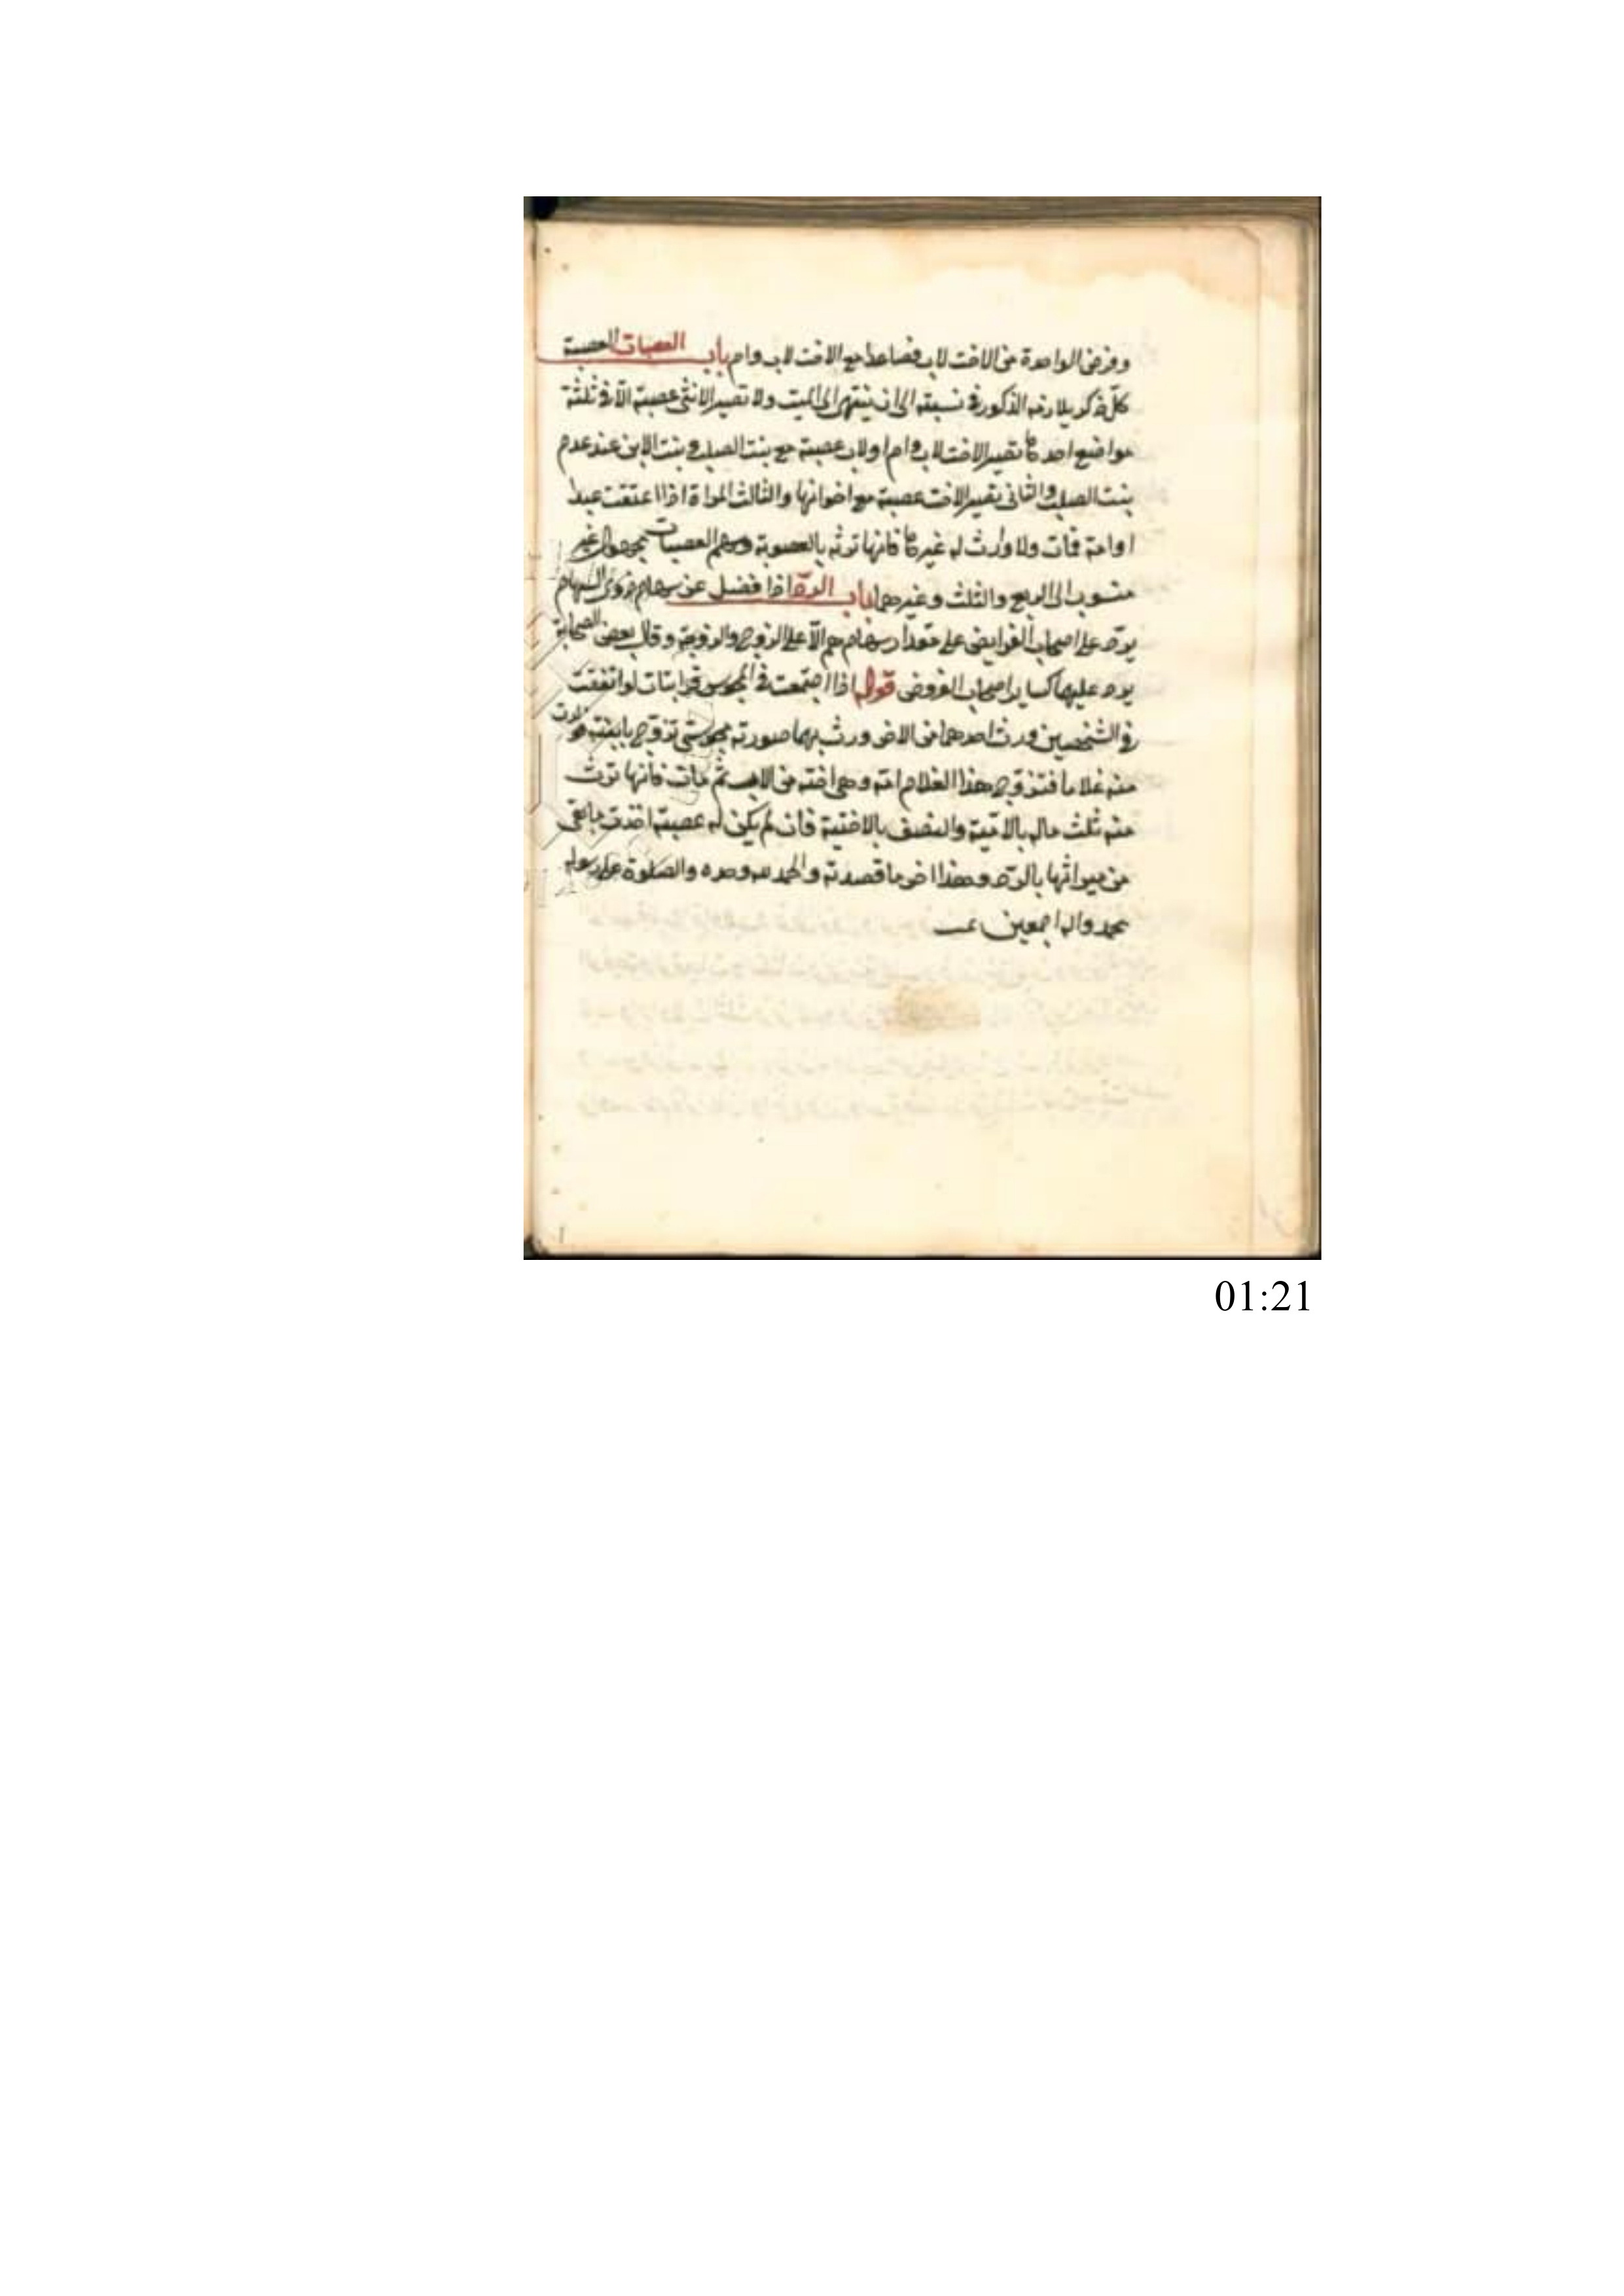 وفرض الواحدة من الاخت لاب فصاعدا مع الاخت لاب وام باب العصبات العصبة
كلّ ذكر يلا رخه الذكور في نسبته الى ان ينتهى الى الميت ولا تصير الانثى عصبة الّا في ثلثة
مواضع احدها تصير الاخت لاب وام او لاب عصبة مع بنت الصلب وبنت الابن عند عدم
بنت الصلب والثانى تصير الاخت عصبة مع اخوانها والثالث المراة اذا اعتقت عبدا
او امة فمات ولا وارث له غيرها فانها ترثه بالعصوبة وسهم العصبات مجهول غير
منسوب الى الربع والثلث وغيرهما باب الردّ اذا فضل عن سهام ذوى السهام
يردّ على اصحاب الفرايض على مقدار سهامهم الّا على الزوج والزوجة وقال بعض الصحابة
يرد عليها كساير اصحاب الفروض قوله اذا اجتمعت في المجوس قرابتان لو اتفقت
في الشخصين ورث احدهما من الاخر ورث بهما صورته مجوسّى تزوّج بابنته فولدت
منه غلاما فتزوّج هذا الغلام امّه وهى اخته من الاب ثمّ مات فانها ترث
منه ثلث ماله بالامّية والنصف بالاختية فان لم يكن له عصبة اخذت ما بقى
من ميراثها بالردّ وهذا اخر ما قصدته والحمد لله وحده والصلوة على رسوله
محمد واله اجمعين
01:21